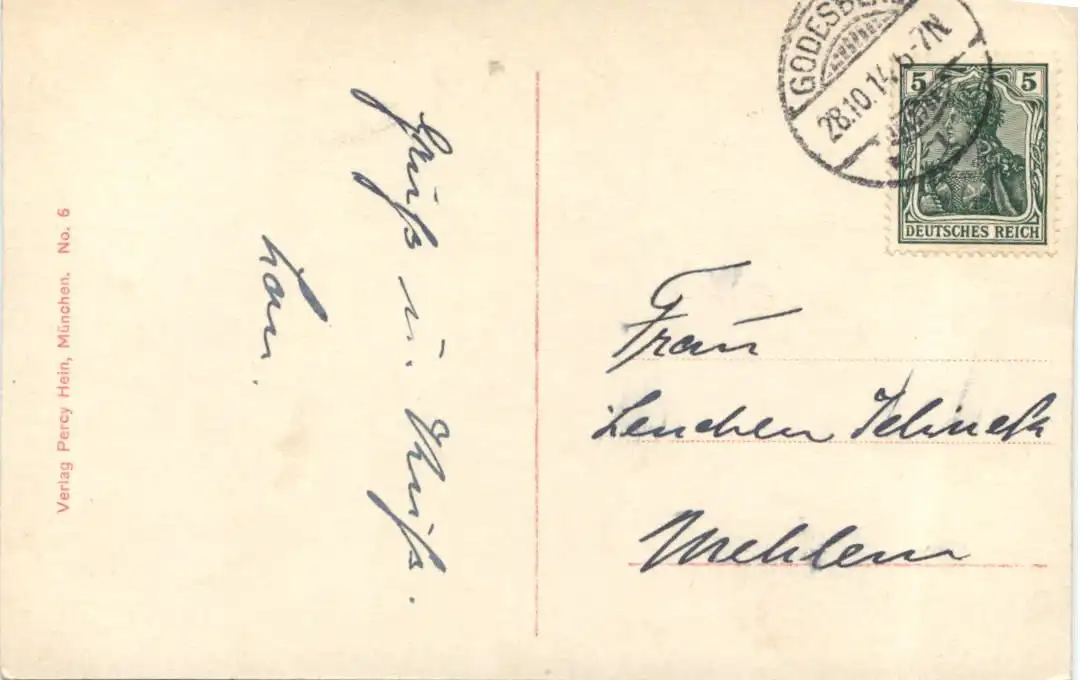 Gruß u. Kuß.
Lou.
Verlag Percy Hein, München. No. 6
GODESBERG
28.10.14. 6-7N
5 5
DEUTSCHES REICH
Frau
Lenchen Jelinek
Mehlem